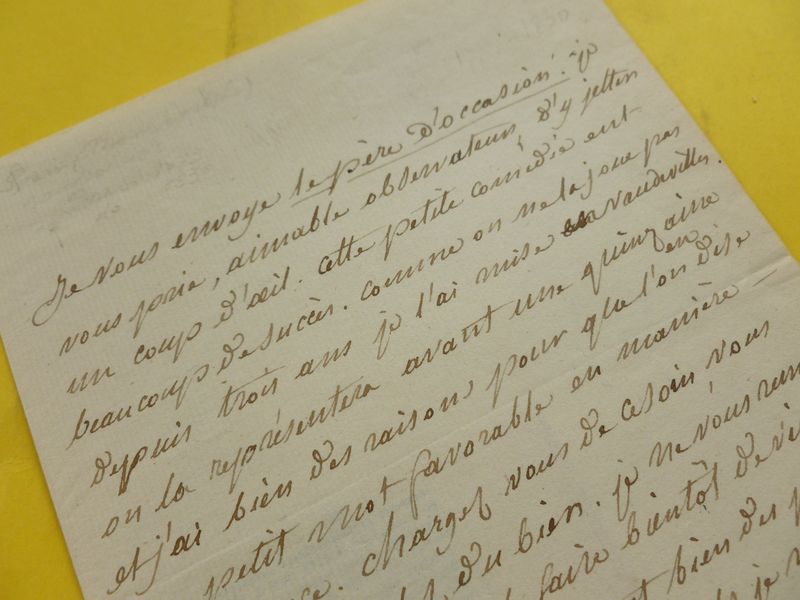 Je vous envoye le père d'occasion. je
vous prie, aimable observateur, d'y jetter
un coup d'œil. cette petite comédie eut
beaucoup de succès. comme on ne la joue pas
depuis trois ans je l'ai mise en vaudevilles.
on la représentera avant une quinzaine
et j'ai bien des raisons pour que l'on en dise
petit mot favorable en manière
chargez vous de ce soin, vous
du bien. je ne vous
faire bientôt de
bien des
je